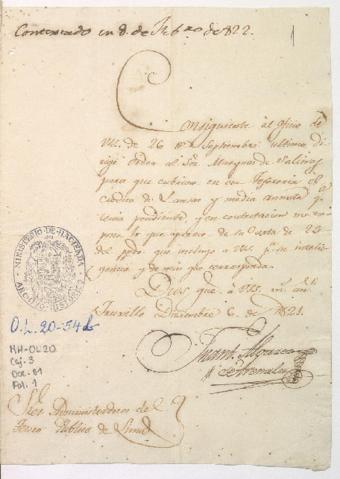 Contestado en 8. de Febro de 822.
1
Consiguiente al oficio de
VSS. de 26 de Septiembre ultimo di-
rigí orden al Sor Marques de Salinas
para que cubriese en esa Tesoreria el
credito de Lanzas y media annata q.
tenia pendiente, y en contestacion me ex-
pone lo que aparece de la Carta de 24
del ppdo. que incluyo a VSS. pa su inteli-
gencia y demas que corresponda.
Dios gue. á VSS. ms. as.
Truxillo Diciembre 6. de 1821.
MINISTERIO DE HACIENDA
ARCHIVO HISTORICO
O.L. 20-54
MH-OL20
Caj. 3
Doc. 81
Fol. 1
Sres. Administradores del
Tesoro Publico de Lima